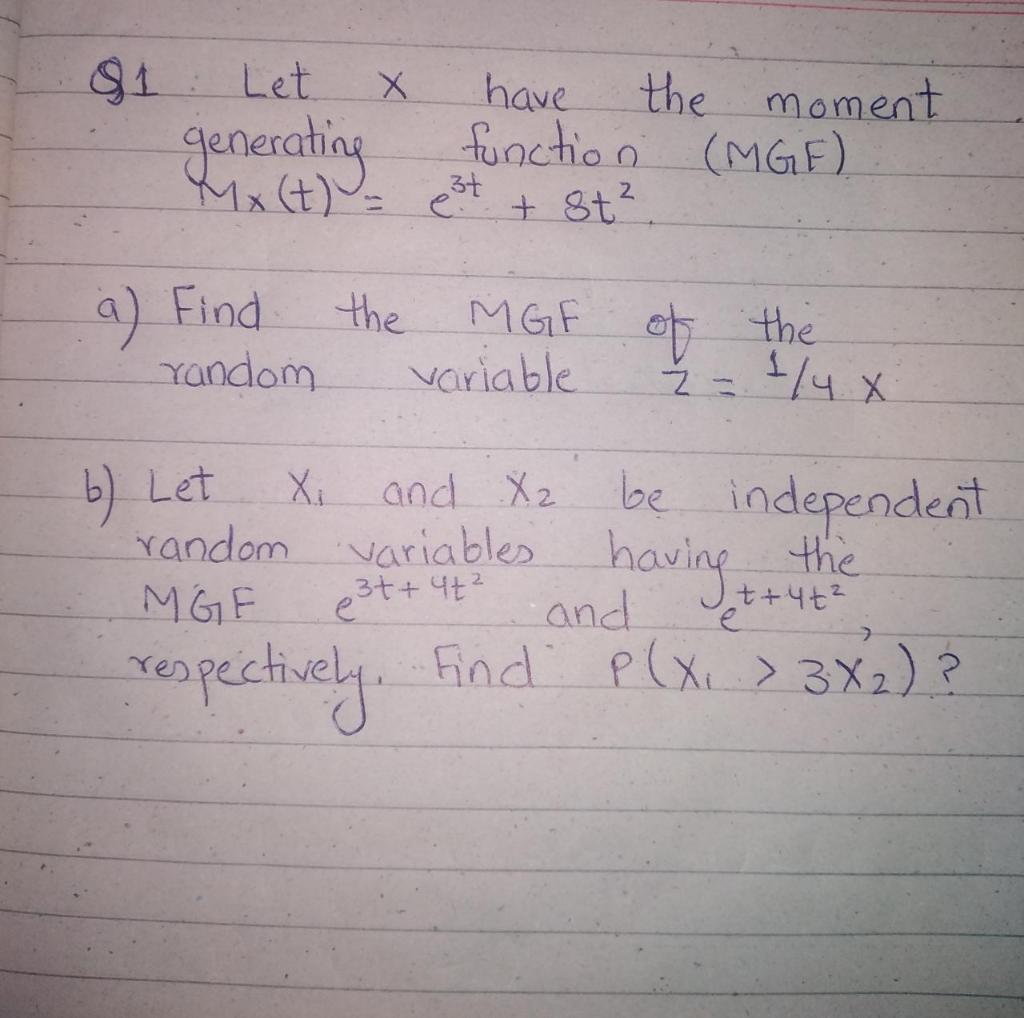 Q1. Let X have the moment
generating function (MGF)
Mx(t) = e³ᵗ + 8t².
a) Find the MGF of the
random variable Z = 1/4 X
b) Let X₁ and X₂ be independent
random variables having the
MGF e³ᵗ⁺⁴ᵗ² and eᵗ⁺⁴ᵗ²,
respectively. Find P(X₁ > 3X₂)?